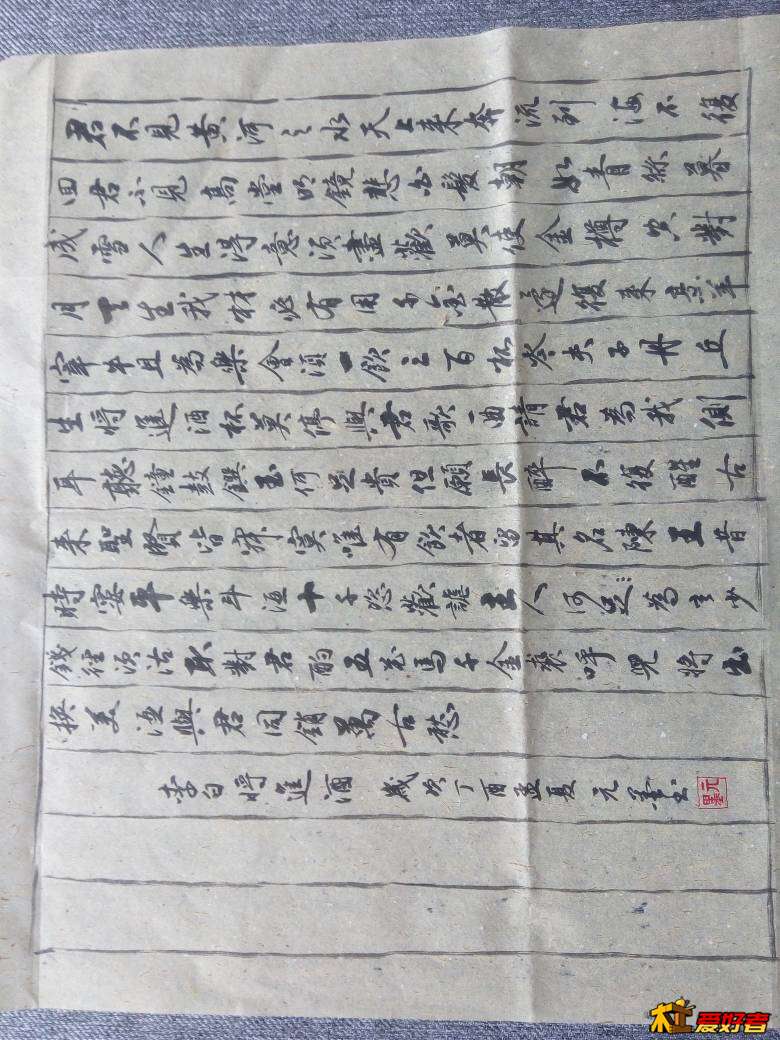 君不見黃河之水天上来奔流到海不復
回君不見高堂明鏡悲白髮朝如青絲暮
成雪人生得意須盡歡莫使金樽空對
月天生我材必有用千金散還復来烹羊
宰牛且為樂會須一飲三百杯岑夫子丹丘
生將進酒杯莫停與君歌一曲請君為我側
耳聽鐘鼓饌玉何足貴但願長醉不復醒古
来聖賢皆寂寞唯有飲者留其名陳王昔
時宴平樂斗酒十千恣歡謔主人何為言少
錢徑須沽取對君酌五花馬千金裘呼兒將出
換美酒與君同銷萬古愁
李白將進酒 歲次丁酉孟夏 元墨書
元墨
杜爱好者